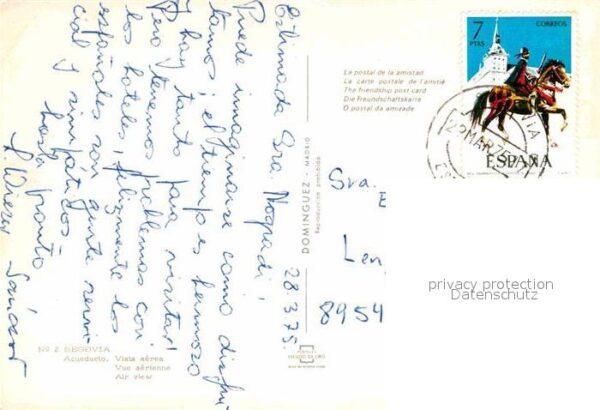 Estimada Sra. Nogradi!
28.3.75.
Puede imaginarse como disfru-
tamos; el tiempo es hermoso
y hay tanto para visitar!
Pero tenemos problemas con
los hoteles; felizmente los
españoles son gente servi-
cial y simpáticos.
hasta pronto!
Nº 2 SEGOVIA
Acueducto. Vista aérea
Vue aérienne
Air view
DOMINGUEZ - MADRID
Reproducción prohibida
La postal de la amistad
La carte postale de l'amitié
The friendship post card
Die Freundschaftskarte
O postal da amizade
7
PTAS
CORREOS
ESPAÑA
Sra.
E
Len
8954
privacy protection
Datenschutz